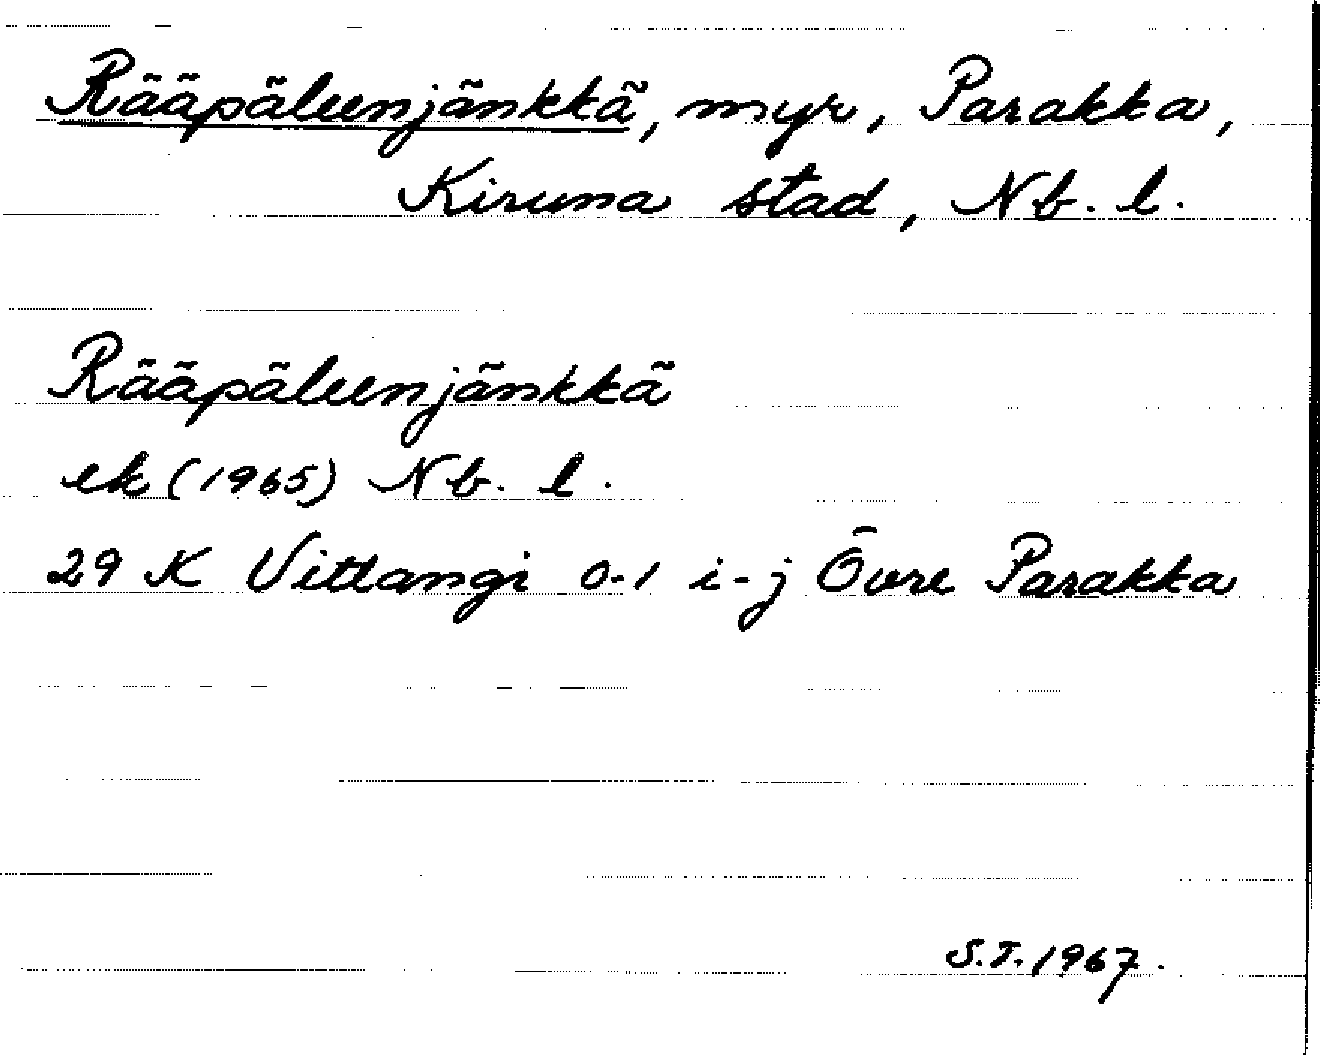 Rääpäleenjänkkä, myr, Parakka,
Kiruna stad, Nb. l.
Rääpäleenjänkkä
ek (1965) Nb. l.
29 K Vittangi 0-1 i-j Övre Parakka
S.T. 1967.